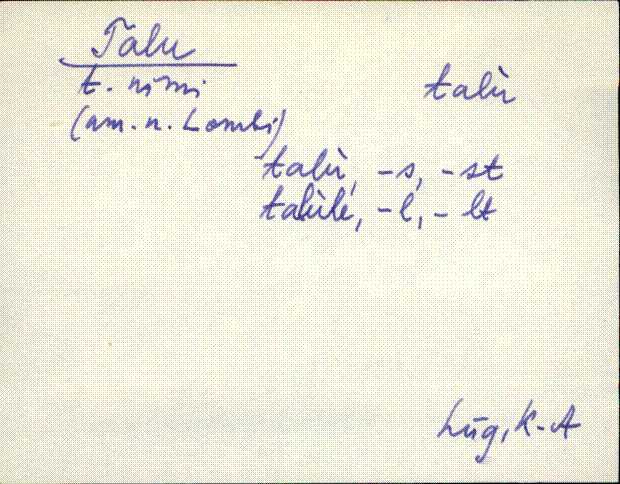 Talu
t. nimi talù
(am. n. Lombi)
talù, -s, -st
talùle, -l, -lt
Lüg, K-A